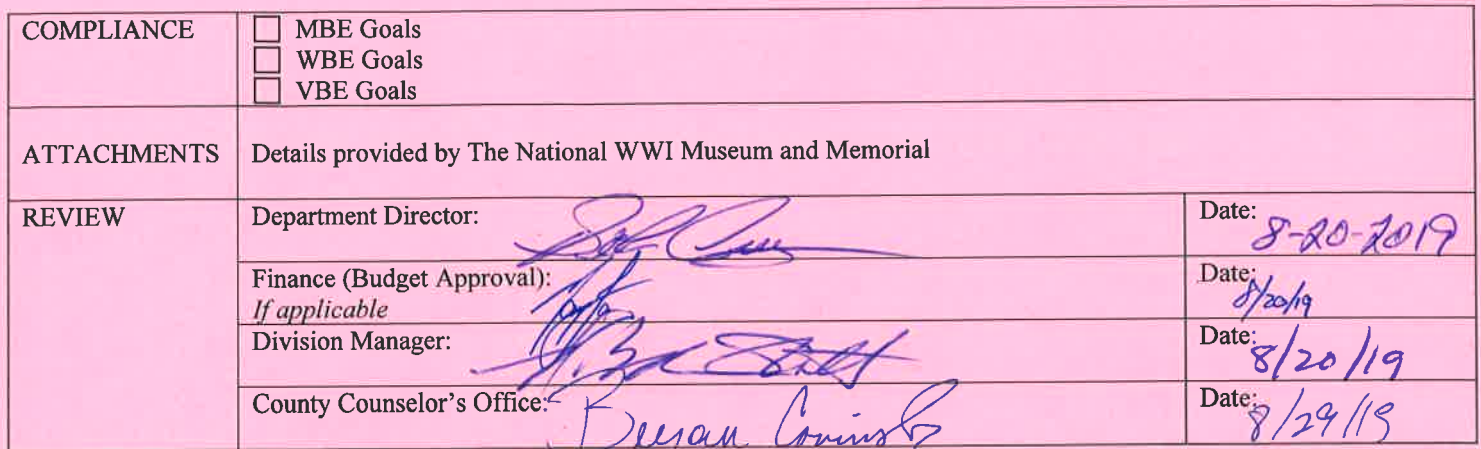 COMPLIANCE
☐ MBE Goals
☐ WBE Goals
☐ VBE Goals
ATTACHMENTS Details provided by The National WWI Museum and Memorial
REVIEW Department Director: Date: 8-20-2019
Finance (Budget Approval): Date: 8/20/19
If applicable
Division Manager: Date: 8/20/19
County Counselor's Office: Date: 8/29/19